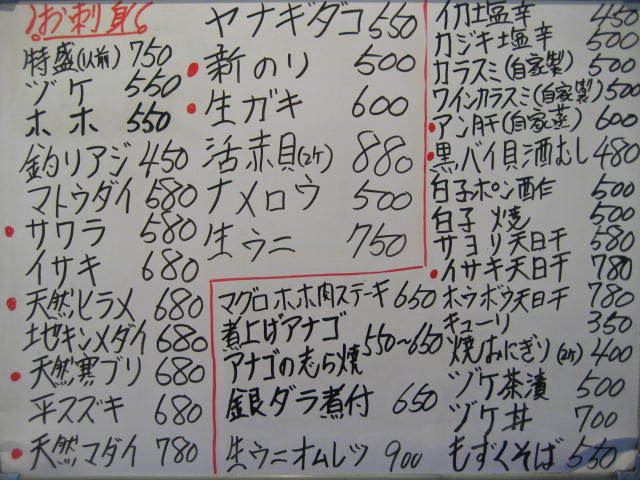 お刺身
特盛(1人前) 750
ヅケ 550
ホホ 550
釣りアジ 450
マトウダイ 580
サワラ 580
イサキ 680
天然ヒラメ 680
地キンメダイ 680
天然寒ブリ 680
平スズキ 680
天然マダイ 780
ヤナギダコ 550
新のり 500
生ガキ 600
活赤貝(2ケ) 880
ナメロウ 500
生ウニ 750
マグロホホ肉ステーキ 650
煮上げアナゴ
アナゴの志ら焼 550〜650
銀ダラ煮付 650
生ウニオムレツ 900
イカ塩辛 450
カジキ塩辛 500
カラスミ(自家製) 500
ワインカラスミ(自家製) 500
アン肝(自家蒸) 600
黒バイ貝酒むし 480
白子ポン酢 500
白子焼 500
サヨリ天日干 580
イサキ天日干 780
ホウボウ天日干 780
キューリ 350
焼おにぎり(2ケ) 400
ヅケ茶漬 500
ヅケ丼 700
もずくそば 550